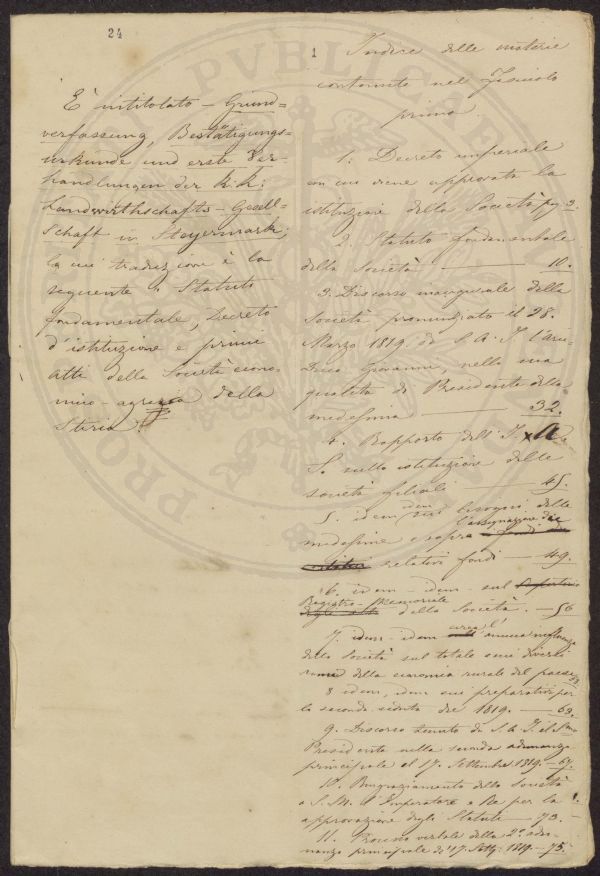 24
È intitolato – Grund=
verfassung, Bestätigungs=
urkunde und erste Ver=
handlungen der k: k:
Landwirthschafts-Gesell=
schaft in Steyermark;
la cui traduzione è la
seguente „ Statuto
fondamentale, Decreto
d'istituzione e primi
atti della Società econo
mico-agraria della
Stiria.
1
Indice delle materie
contenute nel Fascicolo
primo
1. Decreto imperiale
con cui viene approvata la
istituzione della Società pag. 3.
2. Statuto fondamentale
della Società — 10.
3. Discorso inaugurale della
Società pronunziato il 28.
Marzo 1819. da S. A. I. l'arci-
duca Giovanni, nella sua
qualità di Presidente della
medesima — 32.
4. Rapporto dell' I.
S. sulla istituzione delle
società filiali — 45.
5. idem idem bisogni della
medesima e sopra l'assegnazione dei
relativi fondi — 49.
6. idem – idem – sul
Registro-Memoriale
della Società. — 56
7. idem – idem circa l'
annua influenza
della Società sul totale e sui diversi
rami della economia rurale del paese
8 idem, idem sui preparativi per
la seconda seduta del 1819. — 62.
9. Discorso tenuto da S. A. I. il Smo
Presidente nella seconda adunanza
principale el 17. Settembre 1819. – 67.
10. Ringraziamento della Società
a S. M. l'Imperatore e Re per la
approvazione degli Statuti — 73.
11. Processo verbale della 2a adu-
nanza principale di 17 Sett: 1819 – 75.